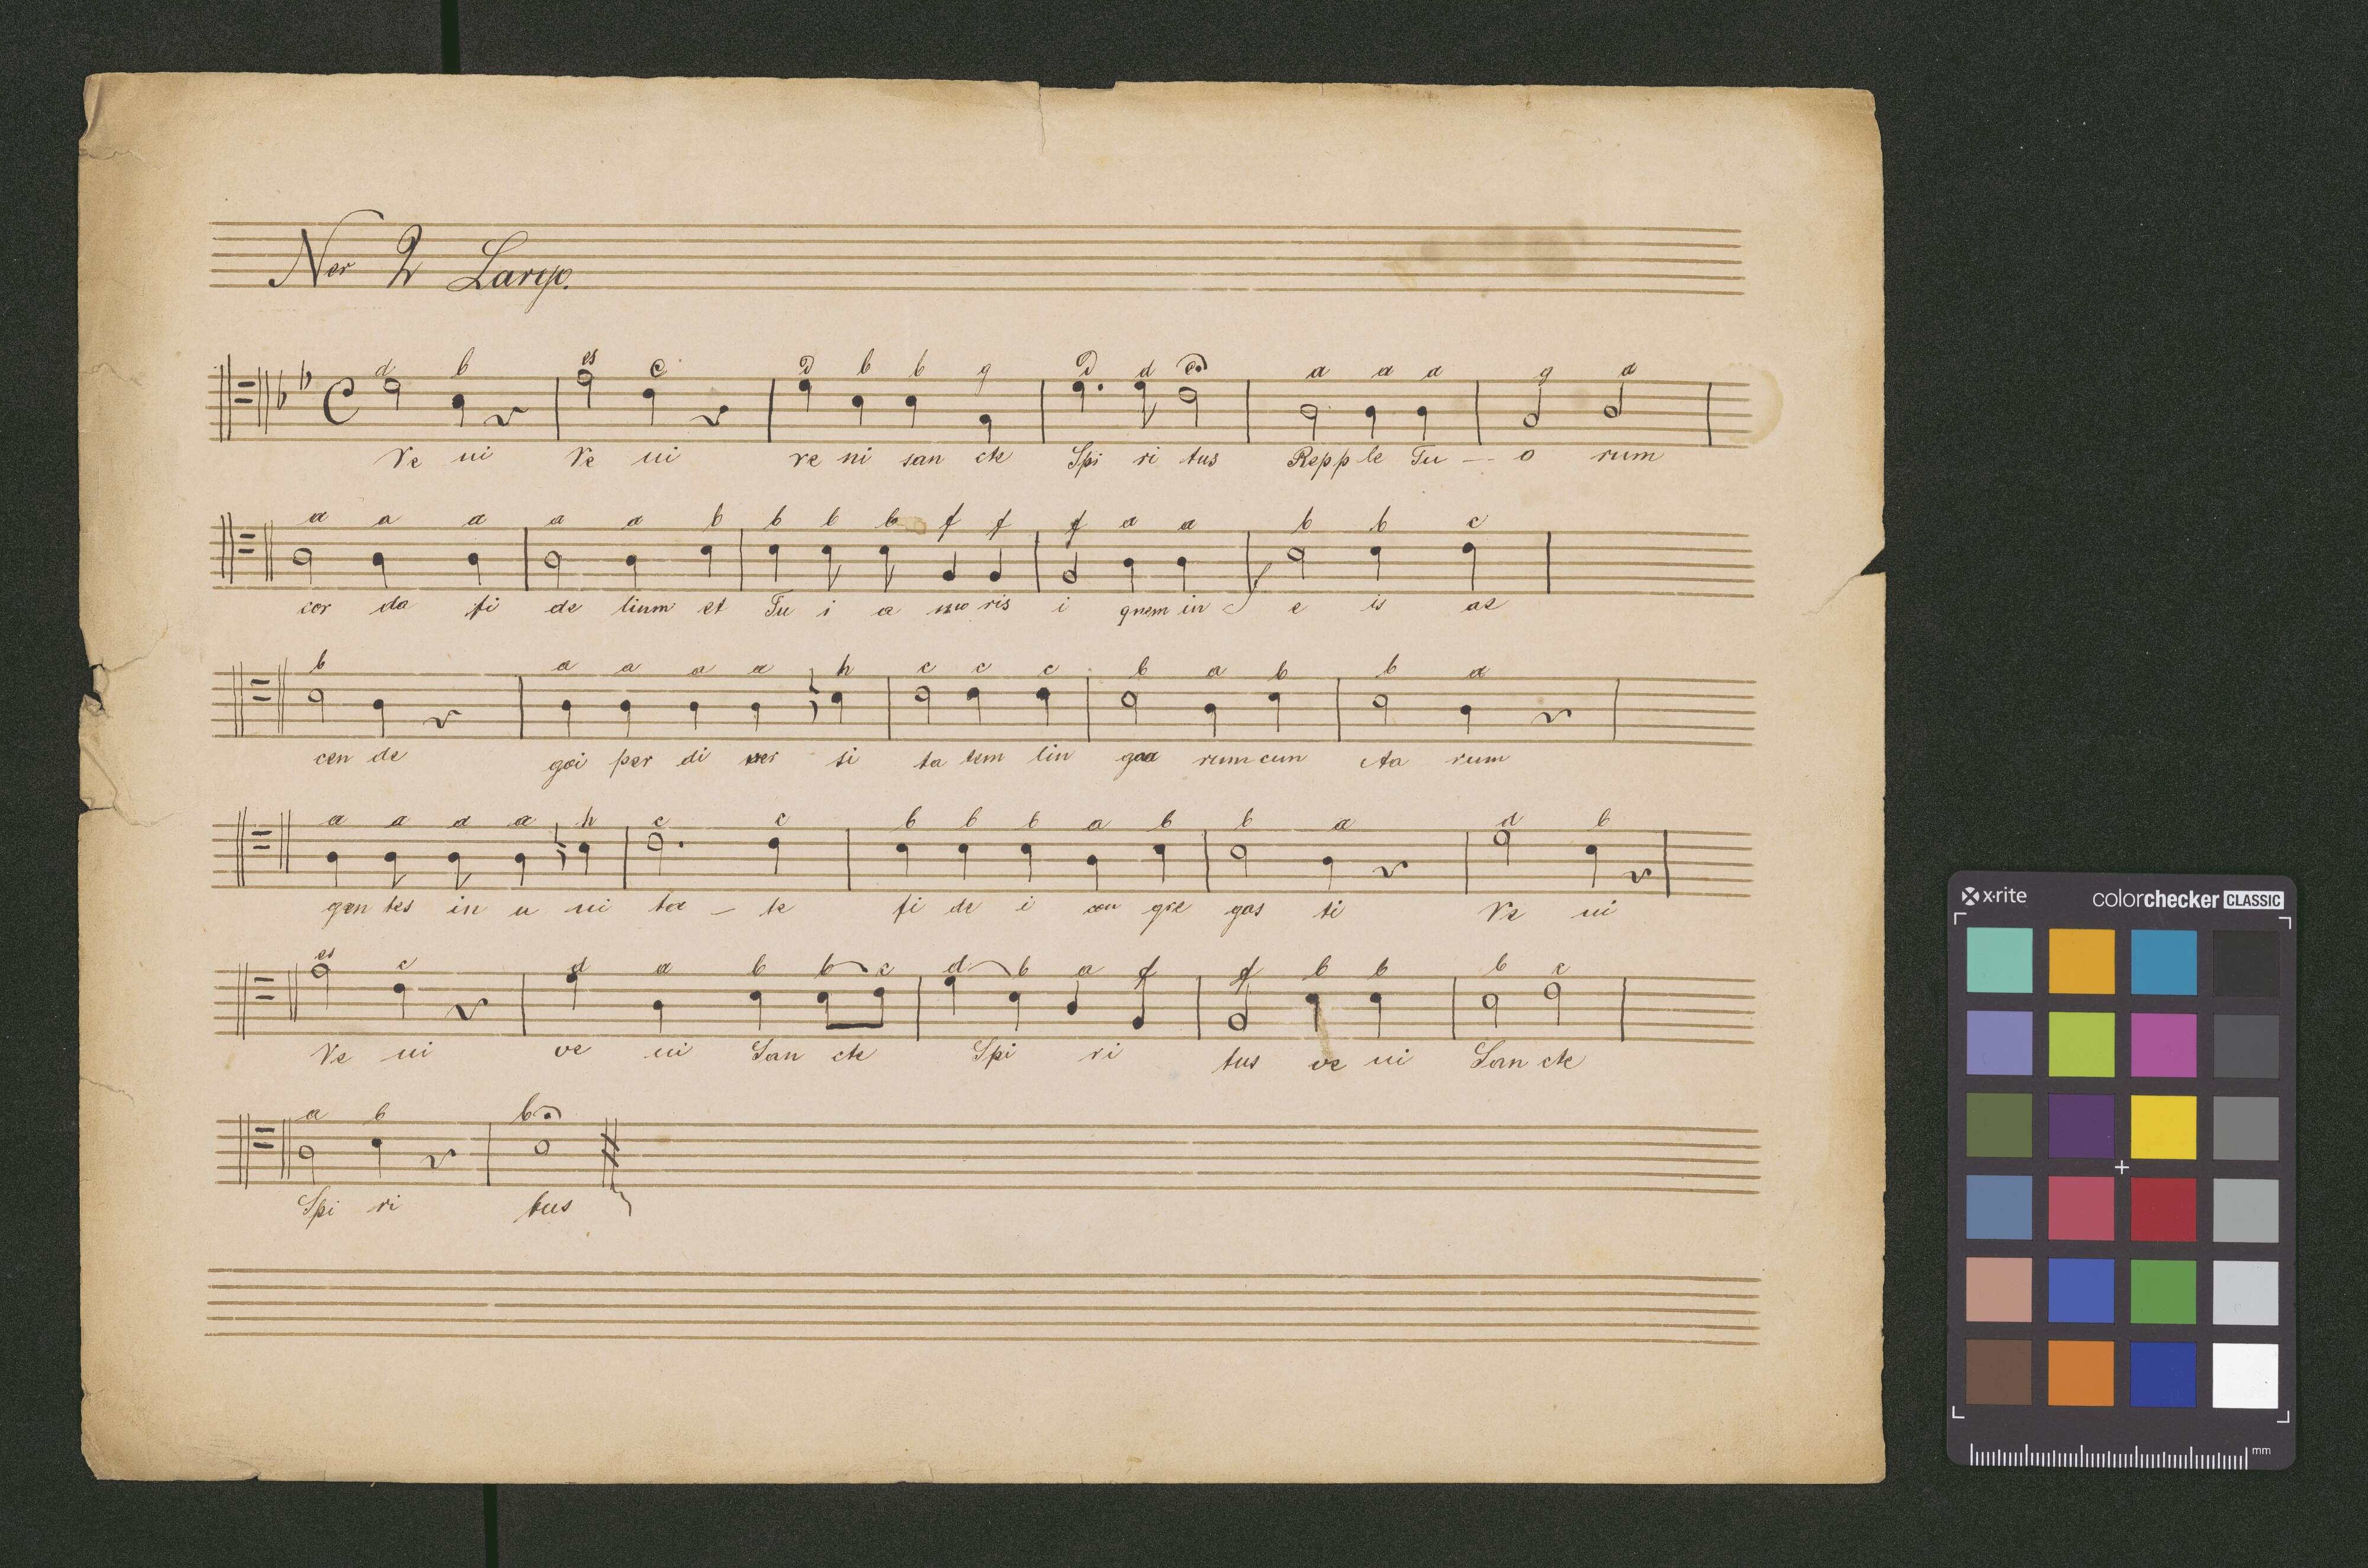 Nor 2 Largo.
d b es c d b b g d d c a a a g a
Ve ni Ve ni ve ni san cte Spi ri tus Repp le Tu — o rum
a a a a a b b b b f f f a a b b c
cor da fi de lium et Tu i a mo ris i gnem in e is ac
b a a a a h c c c b a b b a
cen de qui per di ver si ta tem lin gua rum cun cta rum
a a a a h c c b b b a b b a d b
gen tes in u ni ta — te fi de i con gre gas ti Ve ni
es c d a b b c d b a f f b b b c
Ve ni ve ni San cte Spi ri tus ve ni San cte
a b b
Spi ri tus
x·rite colorchecker CLASSIC
mm